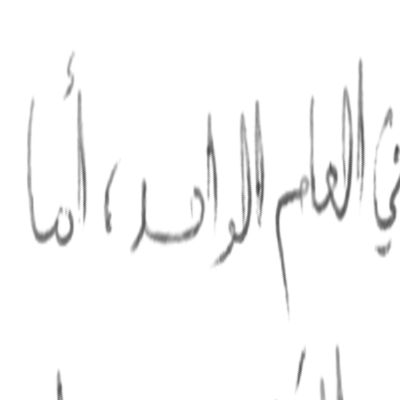 في العام الواحد، أما